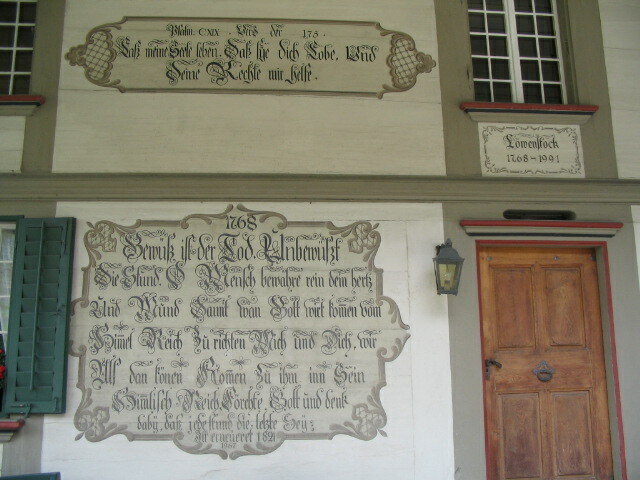 Psalm. CXIX. Vers der 175.
Laß meine Seele leben. Daß sye dich Lobe. Und
Deine Rechte mir helfe.
Löwenstock
1768-1991
1768
Gewüß ist der Tod. Unbewüßt
Die Stund. O Mensch bewahre rein dem hertz
Und Mund Samt wan Gott wirt komen vom
Himel Reich Zu richten Mich und Dich, wir
Als dan könen Komen Zu ihm inn Sein
Himlisch Reich Förchte Gott und denk
daby, daß jede stund die letzte Sey:
Dir erneueret 1821